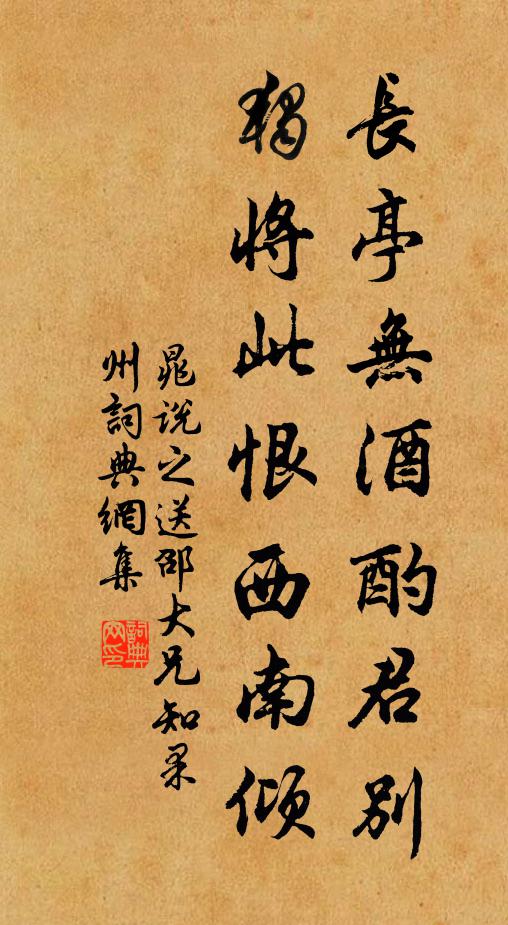 長亭無酒酌君別
獨將此恨西南傾
晁説之送邵大兄知果
州詞典網集
詞典
網印